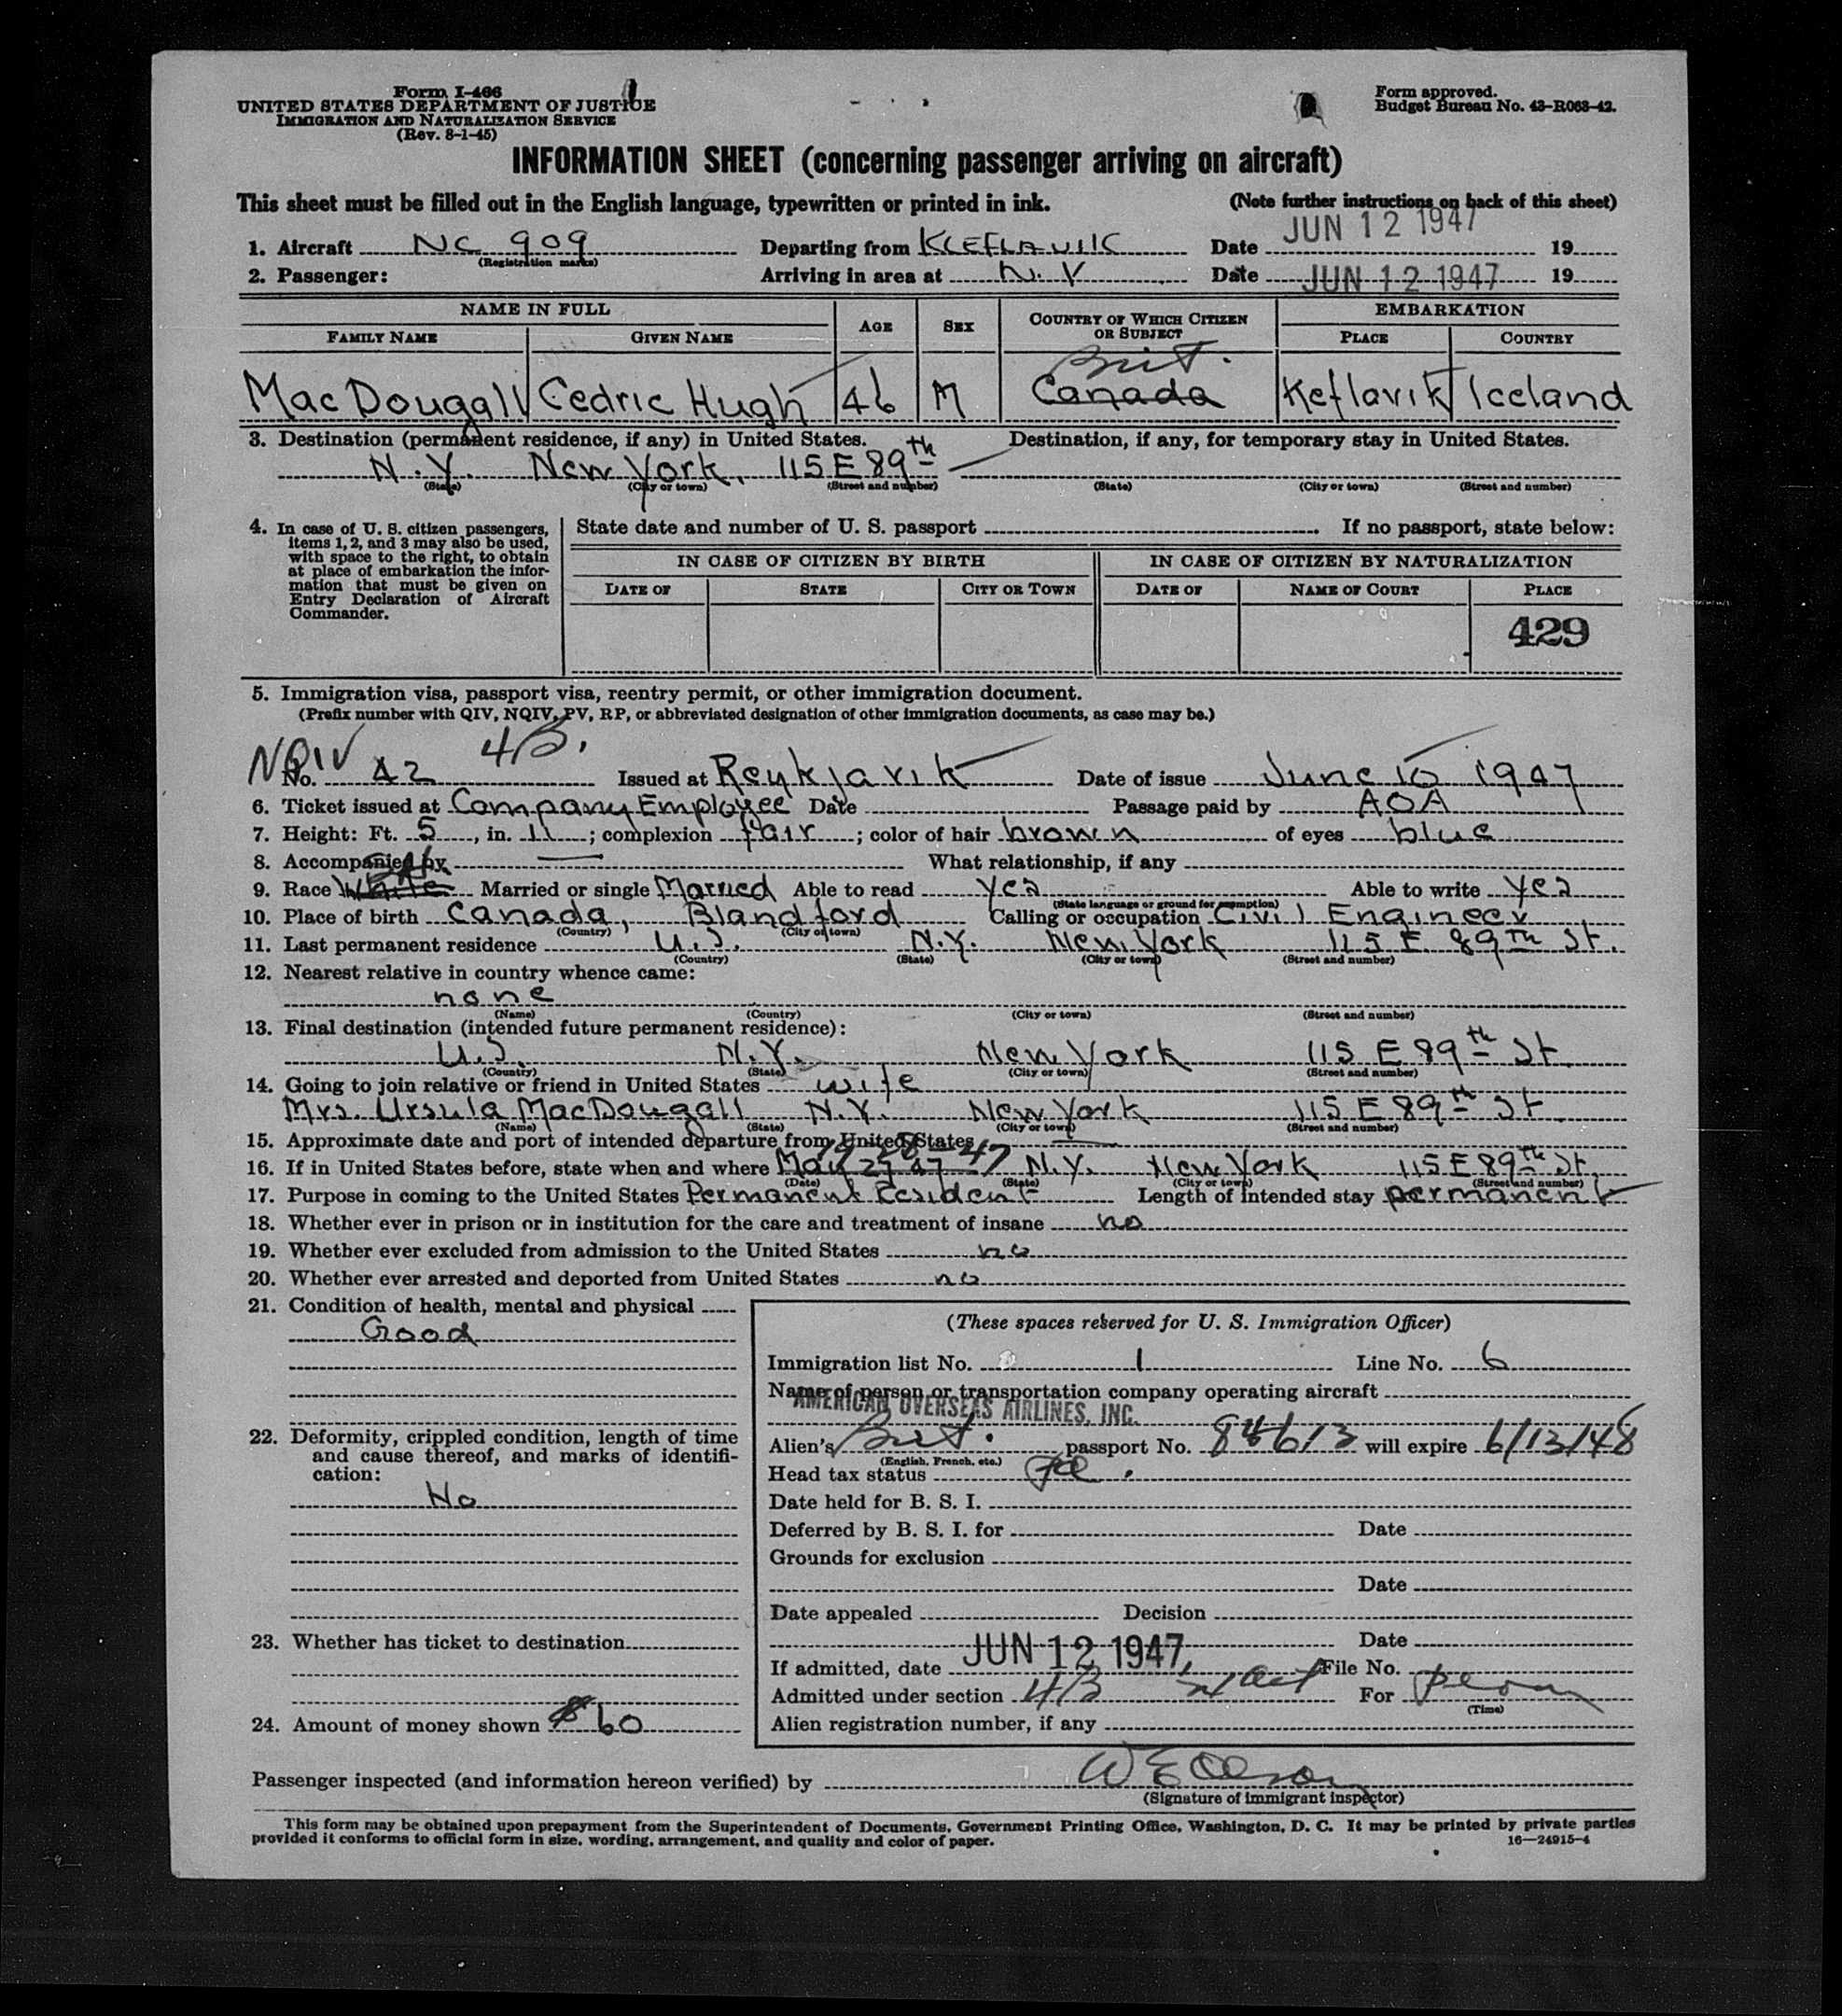 Form I-466
UNITED STATES DEPARTMENT OF JUSTICE
IMMIGRATION AND NATURALIZATION SERVICE
(Rev. 8-1-45)
Form approved.
Budget Bureau No. 43-R063-42.
INFORMATION SHEET (concerning passenger arriving on aircraft)
This sheet must be filled out in the English language, typewritten or printed in ink. (Note further instructions on back of this sheet)
1. Aircraft NC 909 Departing from KEFLAVIK Date JUN 12 1947 19
(Registration marks)
2. Passenger: Arriving in area at N.Y Date JUN 12 1947 19
NAME IN FULL EMBARKATION
FAMILY NAME GIVEN NAME AGE SEX COUNTRY OF WHICH CITIZEN OR SUBJECT PLACE COUNTRY
Brit.
MacDougall Cedric Hugh 46 M Canada Keflavik Iceland
3. Destination (permanent residence, if any) in United States. Destination, if any, for temporary stay in United States.
N.Y. New York, 115 E 89th
(State) (City or town) (Street and number) (State) (City or town) (Street and number)
4. In case of U. S. citizen passengers, items 1, 2, and 3 may also be used, with space to the right, to obtain at place of embarkation the information that must be given on Entry Declaration of Aircraft Commander.
State date and number of U. S. passport . If no passport, state below:
IN CASE OF CITIZEN BY BIRTH IN CASE OF CITIZEN BY NATURALIZATION
DATE OF STATE CITY OR TOWN DATE OF NAME OF COURT PLACE
429
5. Immigration visa, passport visa, reentry permit, or other immigration document.
(Prefix number with QIV, NQIV, PV, RP, or abbreviated designation of other immigration documents, as case may be.)
NQIV 4B.
No. 42 Issued at Reykjavik Date of issue June 10 1947
6. Ticket issued at Company Employee Date Passage paid by AOA
7. Height: Ft. 5, in. 11; complexion fair; color of hair brown of eyes blue
8. Accompanied by — What relationship, if any
9. Race White Married or single Married Able to read yes Able to write yes
(State language or ground for exemption)
10. Place of birth Canada, Blandford Calling or occupation Civil Engineer
(Country) (City or town)
11. Last permanent residence U.S. N.Y. New York 115 E 89th St.
(Country) (State) (City or town) (Street and number)
12. Nearest relative in country whence came:
none
(Name) (Country) (City or town) (Street and number)
13. Final destination (intended future permanent residence):
U.S. N.Y. New York 115 E 89th St.
(Country) (State) (City or town) (Street and number)
14. Going to join relative or friend in United States wife
Mrs. Ursula MacDougall N.Y. New York 115 E 89th St.
(Name) (State) (City or town) (Street and number)
15. Approximate date and port of intended departure from United States —
16. If in United States before, state when and where May 27 47 N.Y. New York 115 E 89th St.
(Date) (State) (City or town) (Street and number)
17. Purpose in coming to the United States Permanent Resident Length of intended stay permanent
18. Whether ever in prison or in institution for the care and treatment of insane no
19. Whether ever excluded from admission to the United States no
20. Whether ever arrested and deported from United States no
21. Condition of health, mental and physical
Good
22. Deformity, crippled condition, length of time and cause thereof, and marks of identification:
No
23. Whether has ticket to destination
24. Amount of money shown $60
(These spaces reserved for U. S. Immigration Officer)
Immigration list No. 1 Line No. 6
Name of person or transportation company operating aircraft
AMERICAN OVERSEAS AIRLINES, INC.
Alien's Brit. passport No. 84613 will expire 6/13/48
(English, French, etc.)
Head tax status
Date held for B. S. I.
Deferred by B. S. I. for Date
Grounds for exclusion
Date
Date appealed Decision
Date
If admitted, date JUN 12 1947, File No.
Admitted under section 4B Act For Perm
(Time)
Alien registration number, if any
Passenger inspected (and information hereon verified) by W E Olson
(Signature of immigrant inspector)
This form may be obtained upon prepayment from the Superintendent of Documents, Government Printing Office, Washington, D. C. It may be printed by private parties
provided it conforms to official form in size, wording, arrangement, and quality and color of paper. 16—24915-4